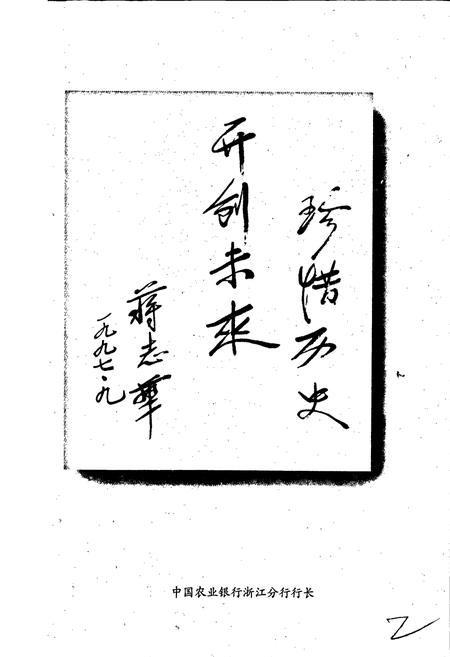 珍惜历史
开创未来
蒋志华
一九九七·九
中国农业银行浙江分行行长